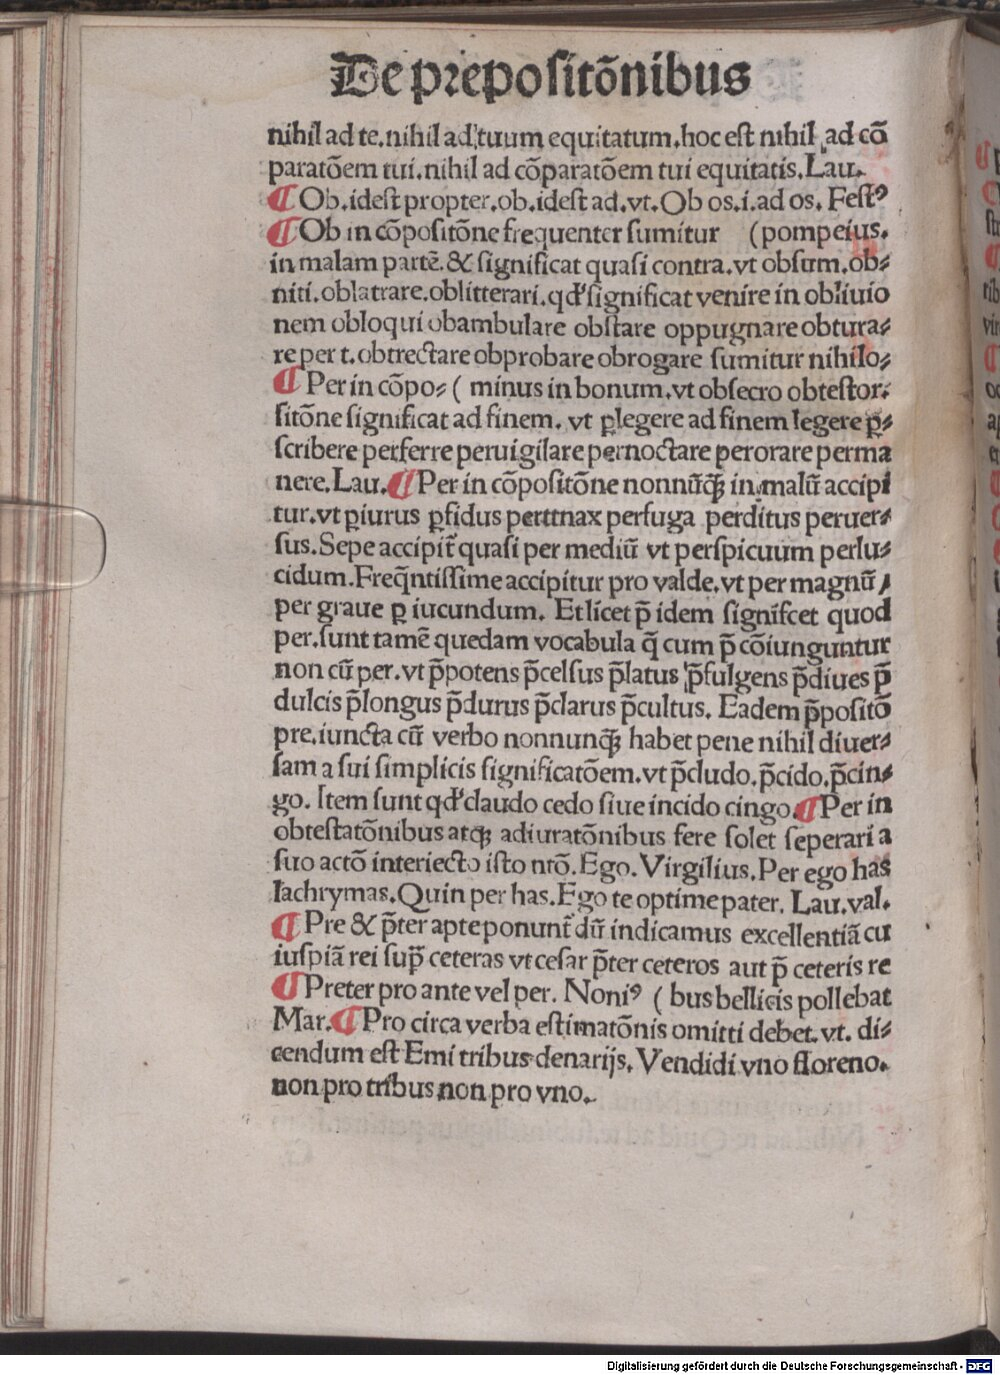 De prepositōnibus
nihil ad te.nihil ad tuum equitatum.hoc est nihil ad cō
paratōem tui.nihil ad cōparatōem tui equitatis.Lau.
¶ Ob.idest propter.ob.idest ad.vt.Ob os.i.ad os. Festꝰ
¶ Ob in cōpositōne frequenter sumitur (pompeius.
in malam partē.& significat quasi contra.vt obsum.ob⸗
niti.oblatrare.oblitterari.qđ significat venire in obliuio
nem obloqui obambulare obstare oppugnare obtura⸗
re per t.obtrectare obprobare obrogare sumitur nihilo⸗
¶ Per in cōpo⸗ ( minus in bonum.vt obsecro obtestor.
sitōne significat ad finem. vt ꝑlegere ad finem legere ꝑ⸗
scribere perferre peruigilare pernoctare perorare perma
nere.Lau.¶ Per in cōpositōne nonnūqꝫ in malū accipi
tur.vt ꝑiurus ꝑfidus perttnax perfuga perditus peruer⸗
sus.Sepe accipit̄ quasi per mediū vt perspicuum perlu⸗
cidum.Freq̄ntissime accipitur pro valde.vt per magnū,
per graue ꝑ iucundum. Et licet p̄ idem signifcet quod
per.sunt tamē quedam vocabula q̄ cum p̄ cōiunguntur
non cū per.vt p̄potens p̄celsus p̄latus p̄fulgens p̄diues p̄
dulcis p̄longus p̄durus p̄clarus p̄cultus. Eadem p̄positō
pre.iuncta cū verbo nonnunqꝫ habet pene nihil diuer⸗
sam a sui simplicis significatōem.vt p̄cludo.p̄cido.p̄cin⸗
go. Item sunt qđ claudo cedo siue incido cingo.¶ Per in
obtestatōnibus atqꝫ adiuratōnibus fere solet seperari a
suo actō interiecto isto nrō.Ego.Virgilius.Per ego has
lachrymas.Quin per has.Ego te optime pater. Lau.val.
¶ Pre & p̄ter apte ponunt̄ dū indicamus excellentiā cu
iuspiā rei sup̄ ceteras vt cesar p̄ter ceteros aut p̄ ceteris re
¶ Preter pro ante vel per. Noniꝰ ( bus bellicis pollebat
Mar.¶ Pro circa verba estimatōnis omitti debet.vt. di⸗
cendum est Emi tribus denarijs. Vendidi vno floreno.
non pro tribus non pro vno.
Digitalisierung gefördert durch die Deutsche Forschungsgemeinschaft - DFG